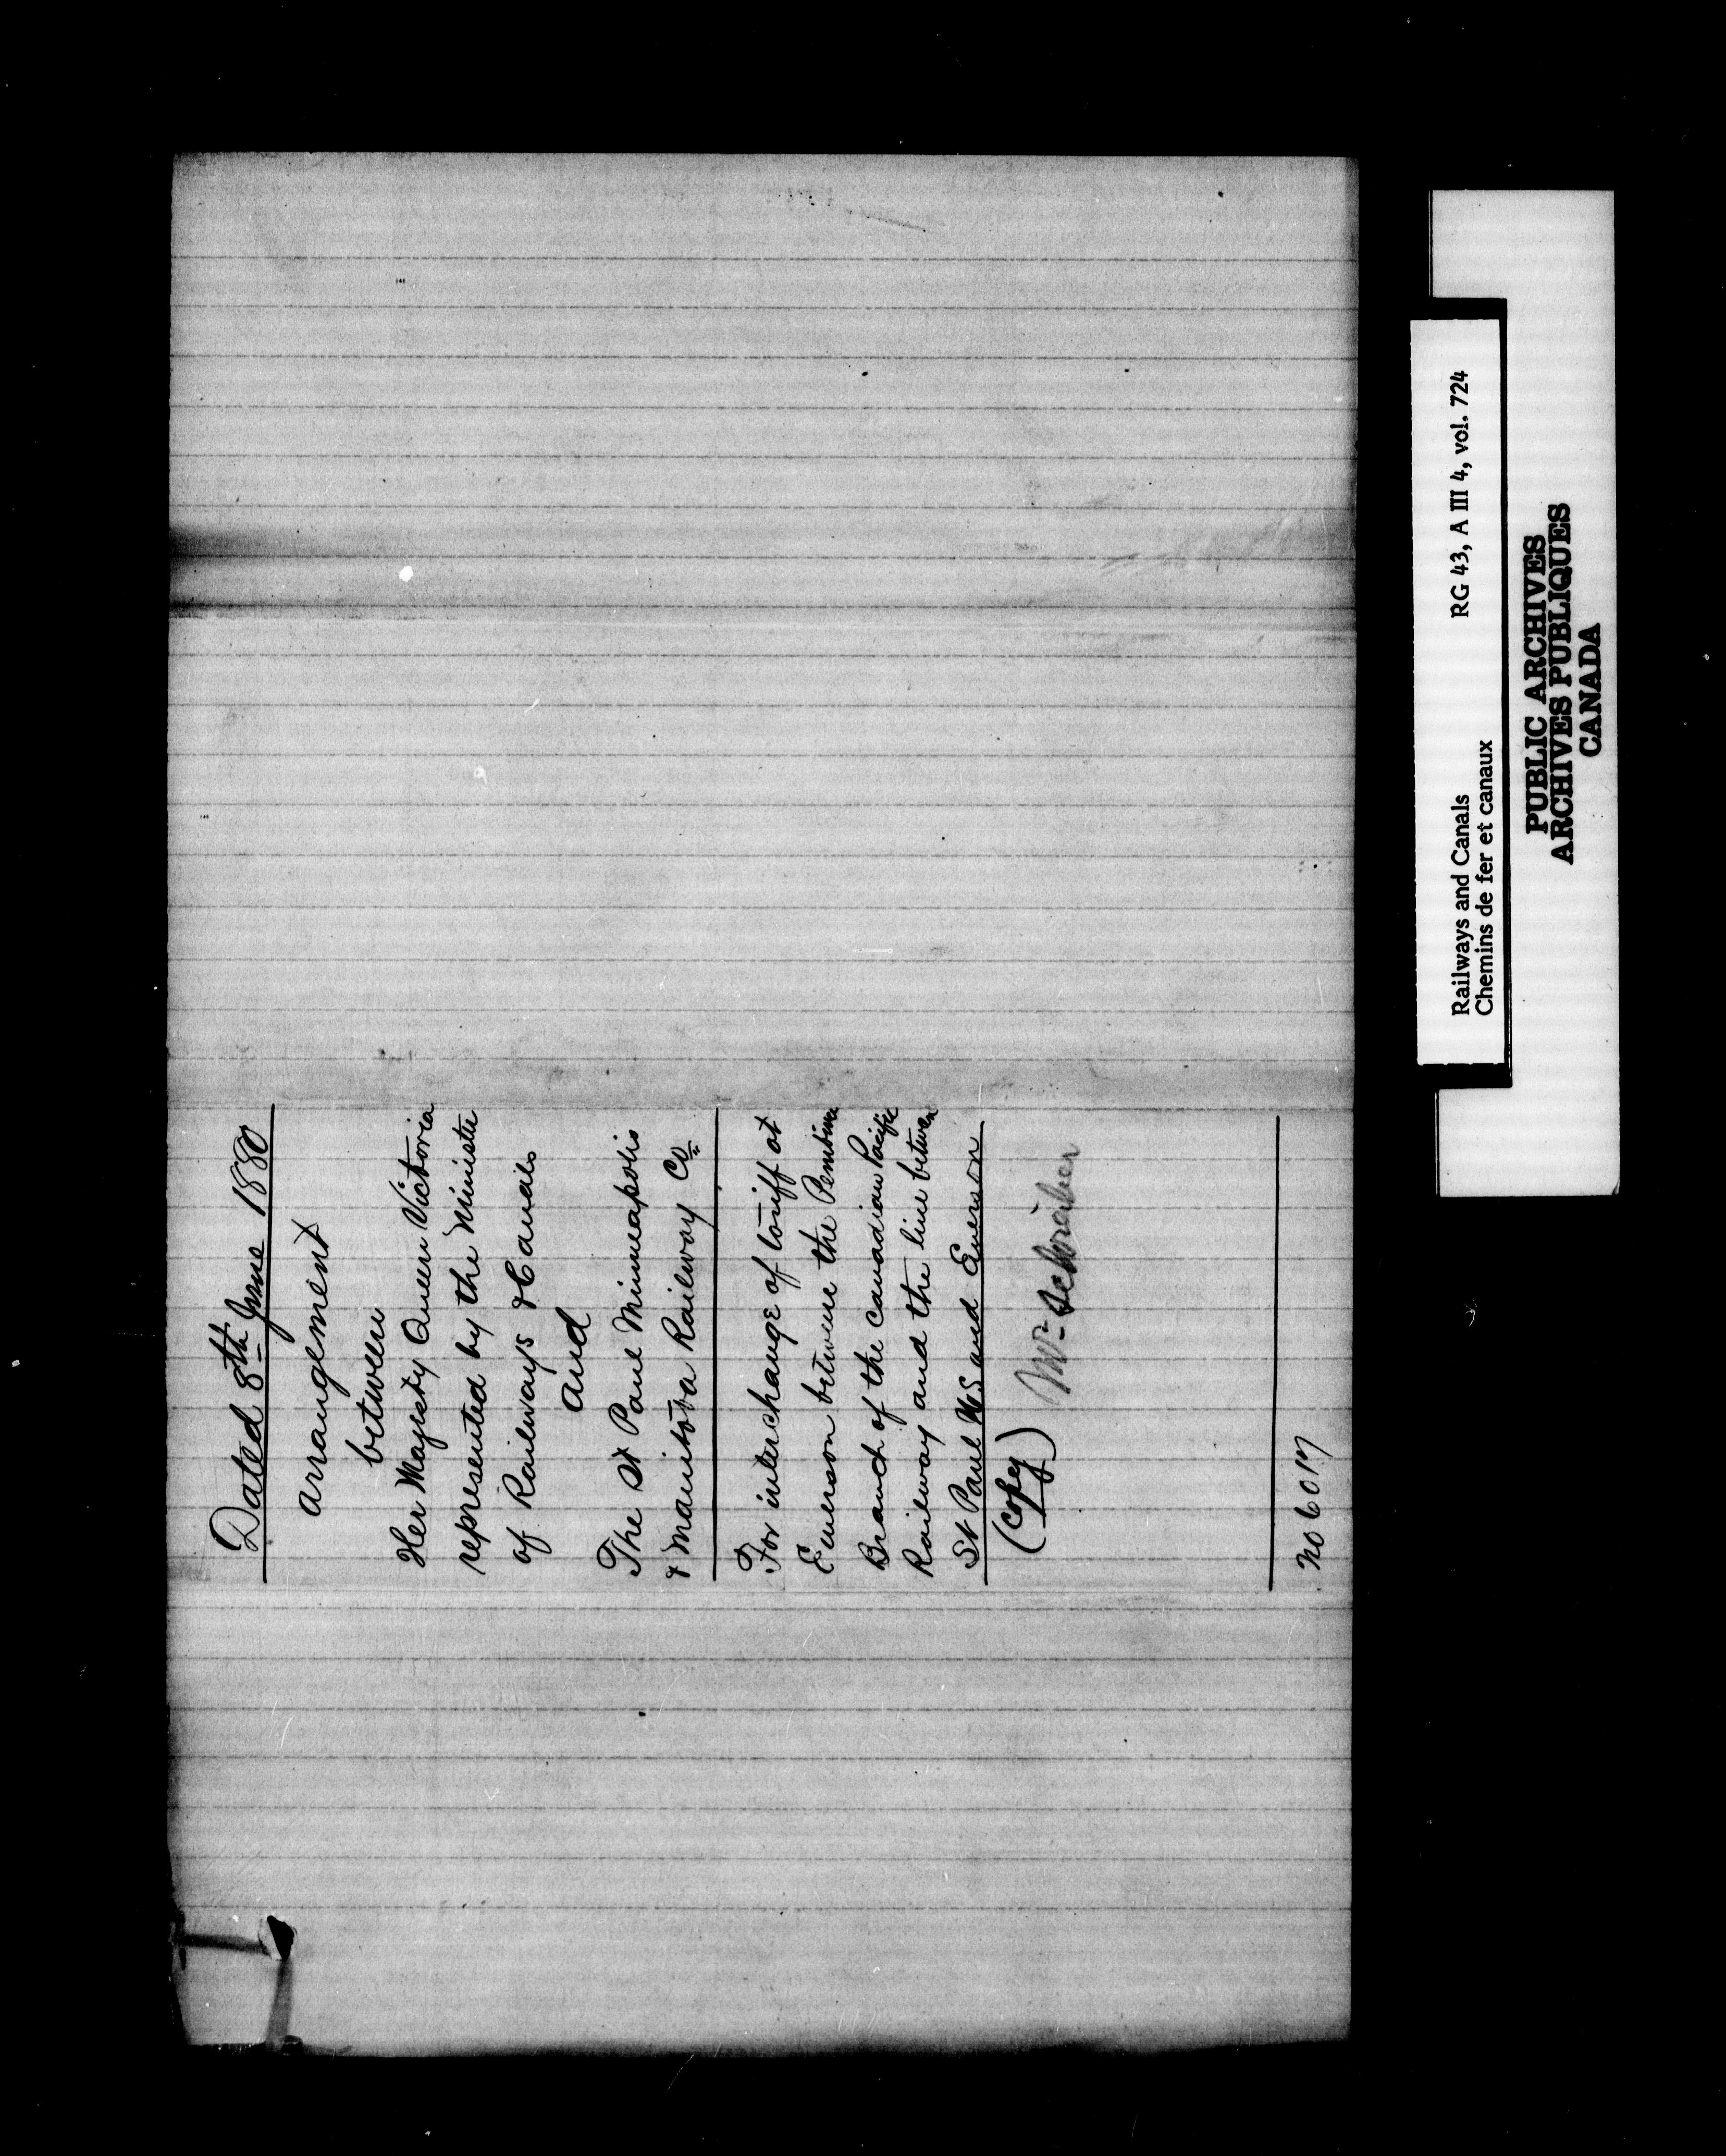 Dated 8th June 1880
Arrangement
between
Her Majesty Queen Victoria
represented by the Minister
of Railways & Canals
and
The St Paul Minneapolis
& Manitoba Railway Co
For interchange of tariff at
Emerson between the Pembina
Branch of the Canadian Pacific
Railway and the line between
St Paul U.S and Emerson
(Copy) Mr Schreiber
No 6017
Railways and Canals RG 43, A III 4, vol. 724
Chemins de fer et canaux
PUBLIC ARCHIVES
ARCHIVES PUBLIQUES
CANADA